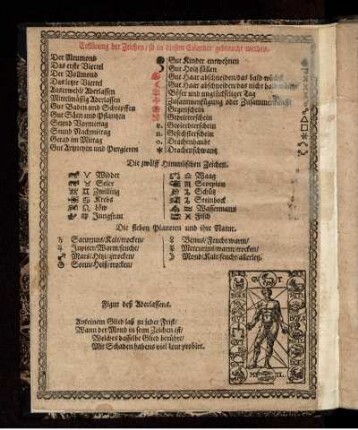 Erklärung der Zeichen / so in diesem Calender gebraucht werden.
Der Newmond
Das erste Viertel
Der Vollmond
Das letzte Viertel
Außerwehlt Aderlassen
Mittelmässig Aderlassen
Gut Baden und Schrepffen
Gut Säen und Pflantzen
Stund Vormittag
Stund Nachmittag
Gerad im Mittag
Gut Artzneyen und Purgieren
Gut Kinder entwehnen
Gut Holtz fällen
Gut Haar abschneiden das bald wächst
Gut Haar abschneiden das nicht bald
Böser und unglückseliger Tag
Zusammenfügung oder
Gegenschein
Gevierterschein
Gedritterschein
Gesechsterschein
Drachenhaubt
Drachenschwantz
Die zwölff Himmlischen Zeichen.
♈ Widder
♉ Stier
♊ Zwilling
♋ Krebs
♌ Löw
♍ Jungfraw
♎ Waag
♏ Scorpion
♐ Schütz
♑ Steinbock
♒ Wassermann
♓ Fisch
Die sieben Planeten und ihre Natur.
♄ Saturnus / Kalt / trocken /
♃ Jupiter / Warm / feucht /
♂ Mars / Hitz / trocken /
☉ Sonn / Heiß / trocken /
♀ Venus / Feucht warm /
☿ Mercurius / warm / trocken /
☽ Mond / Kalt / feucht / allerley.
Figur deß Aderlassens.
An keinem Glied laß zu jeder Frist /
Wann der Mond in seim Zeichen ist /
Welches dasselbe Glied berührt /
Mit Schaden habens viel leut probirt.